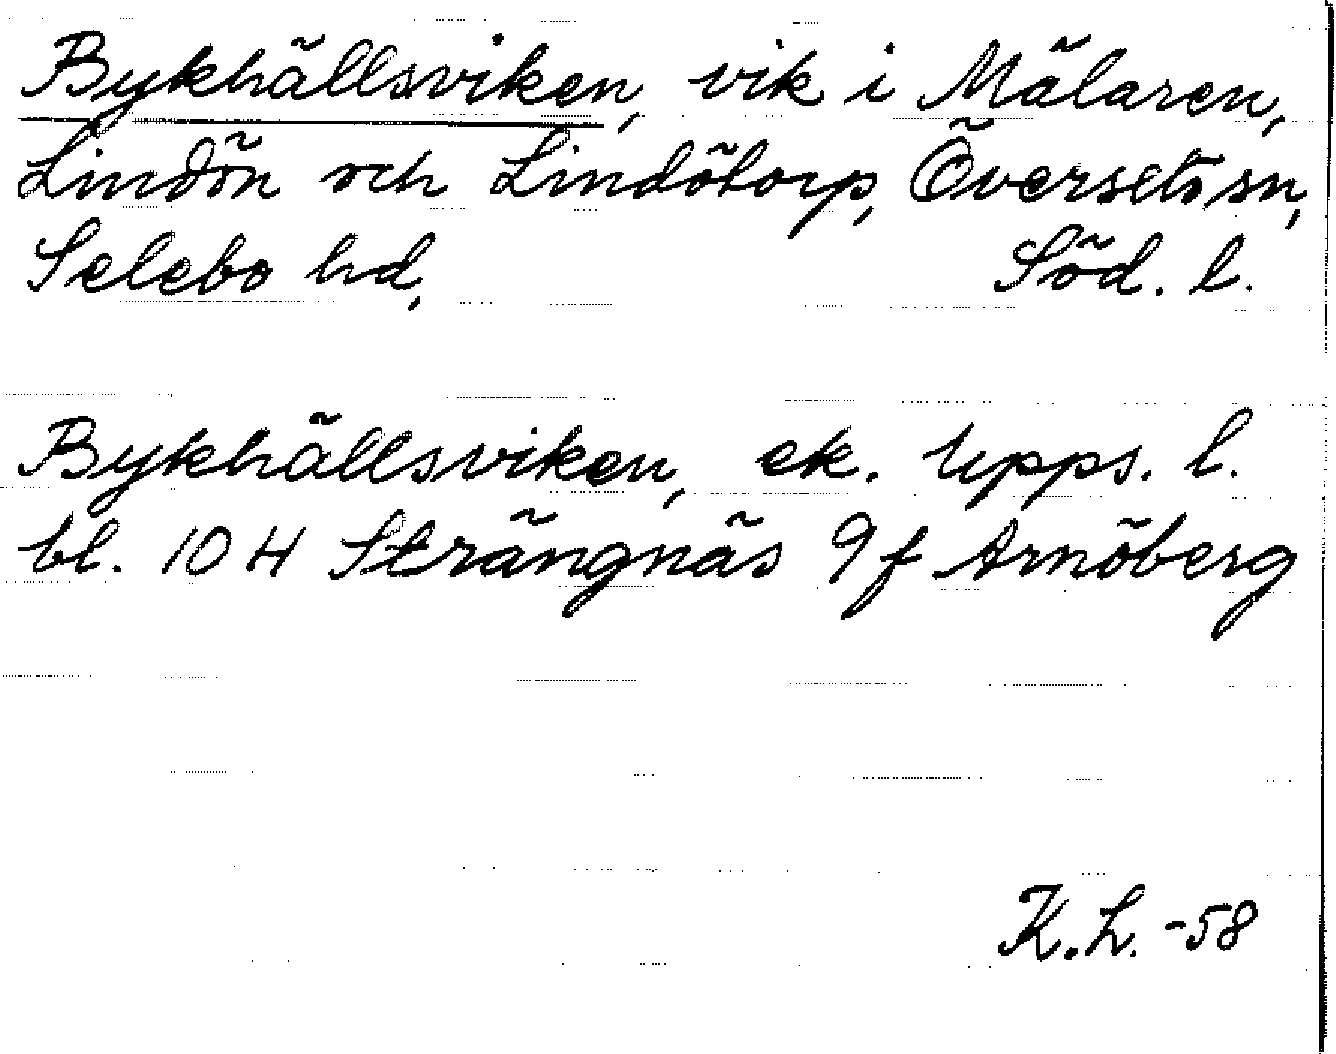 Bykhällsviken, vik i Mälaren,
Lindön och Lindötorp, Överselö sn,
Selebo hd, Söd. l.
Bykhällsviken, ek. Upps. l.
bl. 10 H Strängnäs 9f Arnöberg
K.L. -58